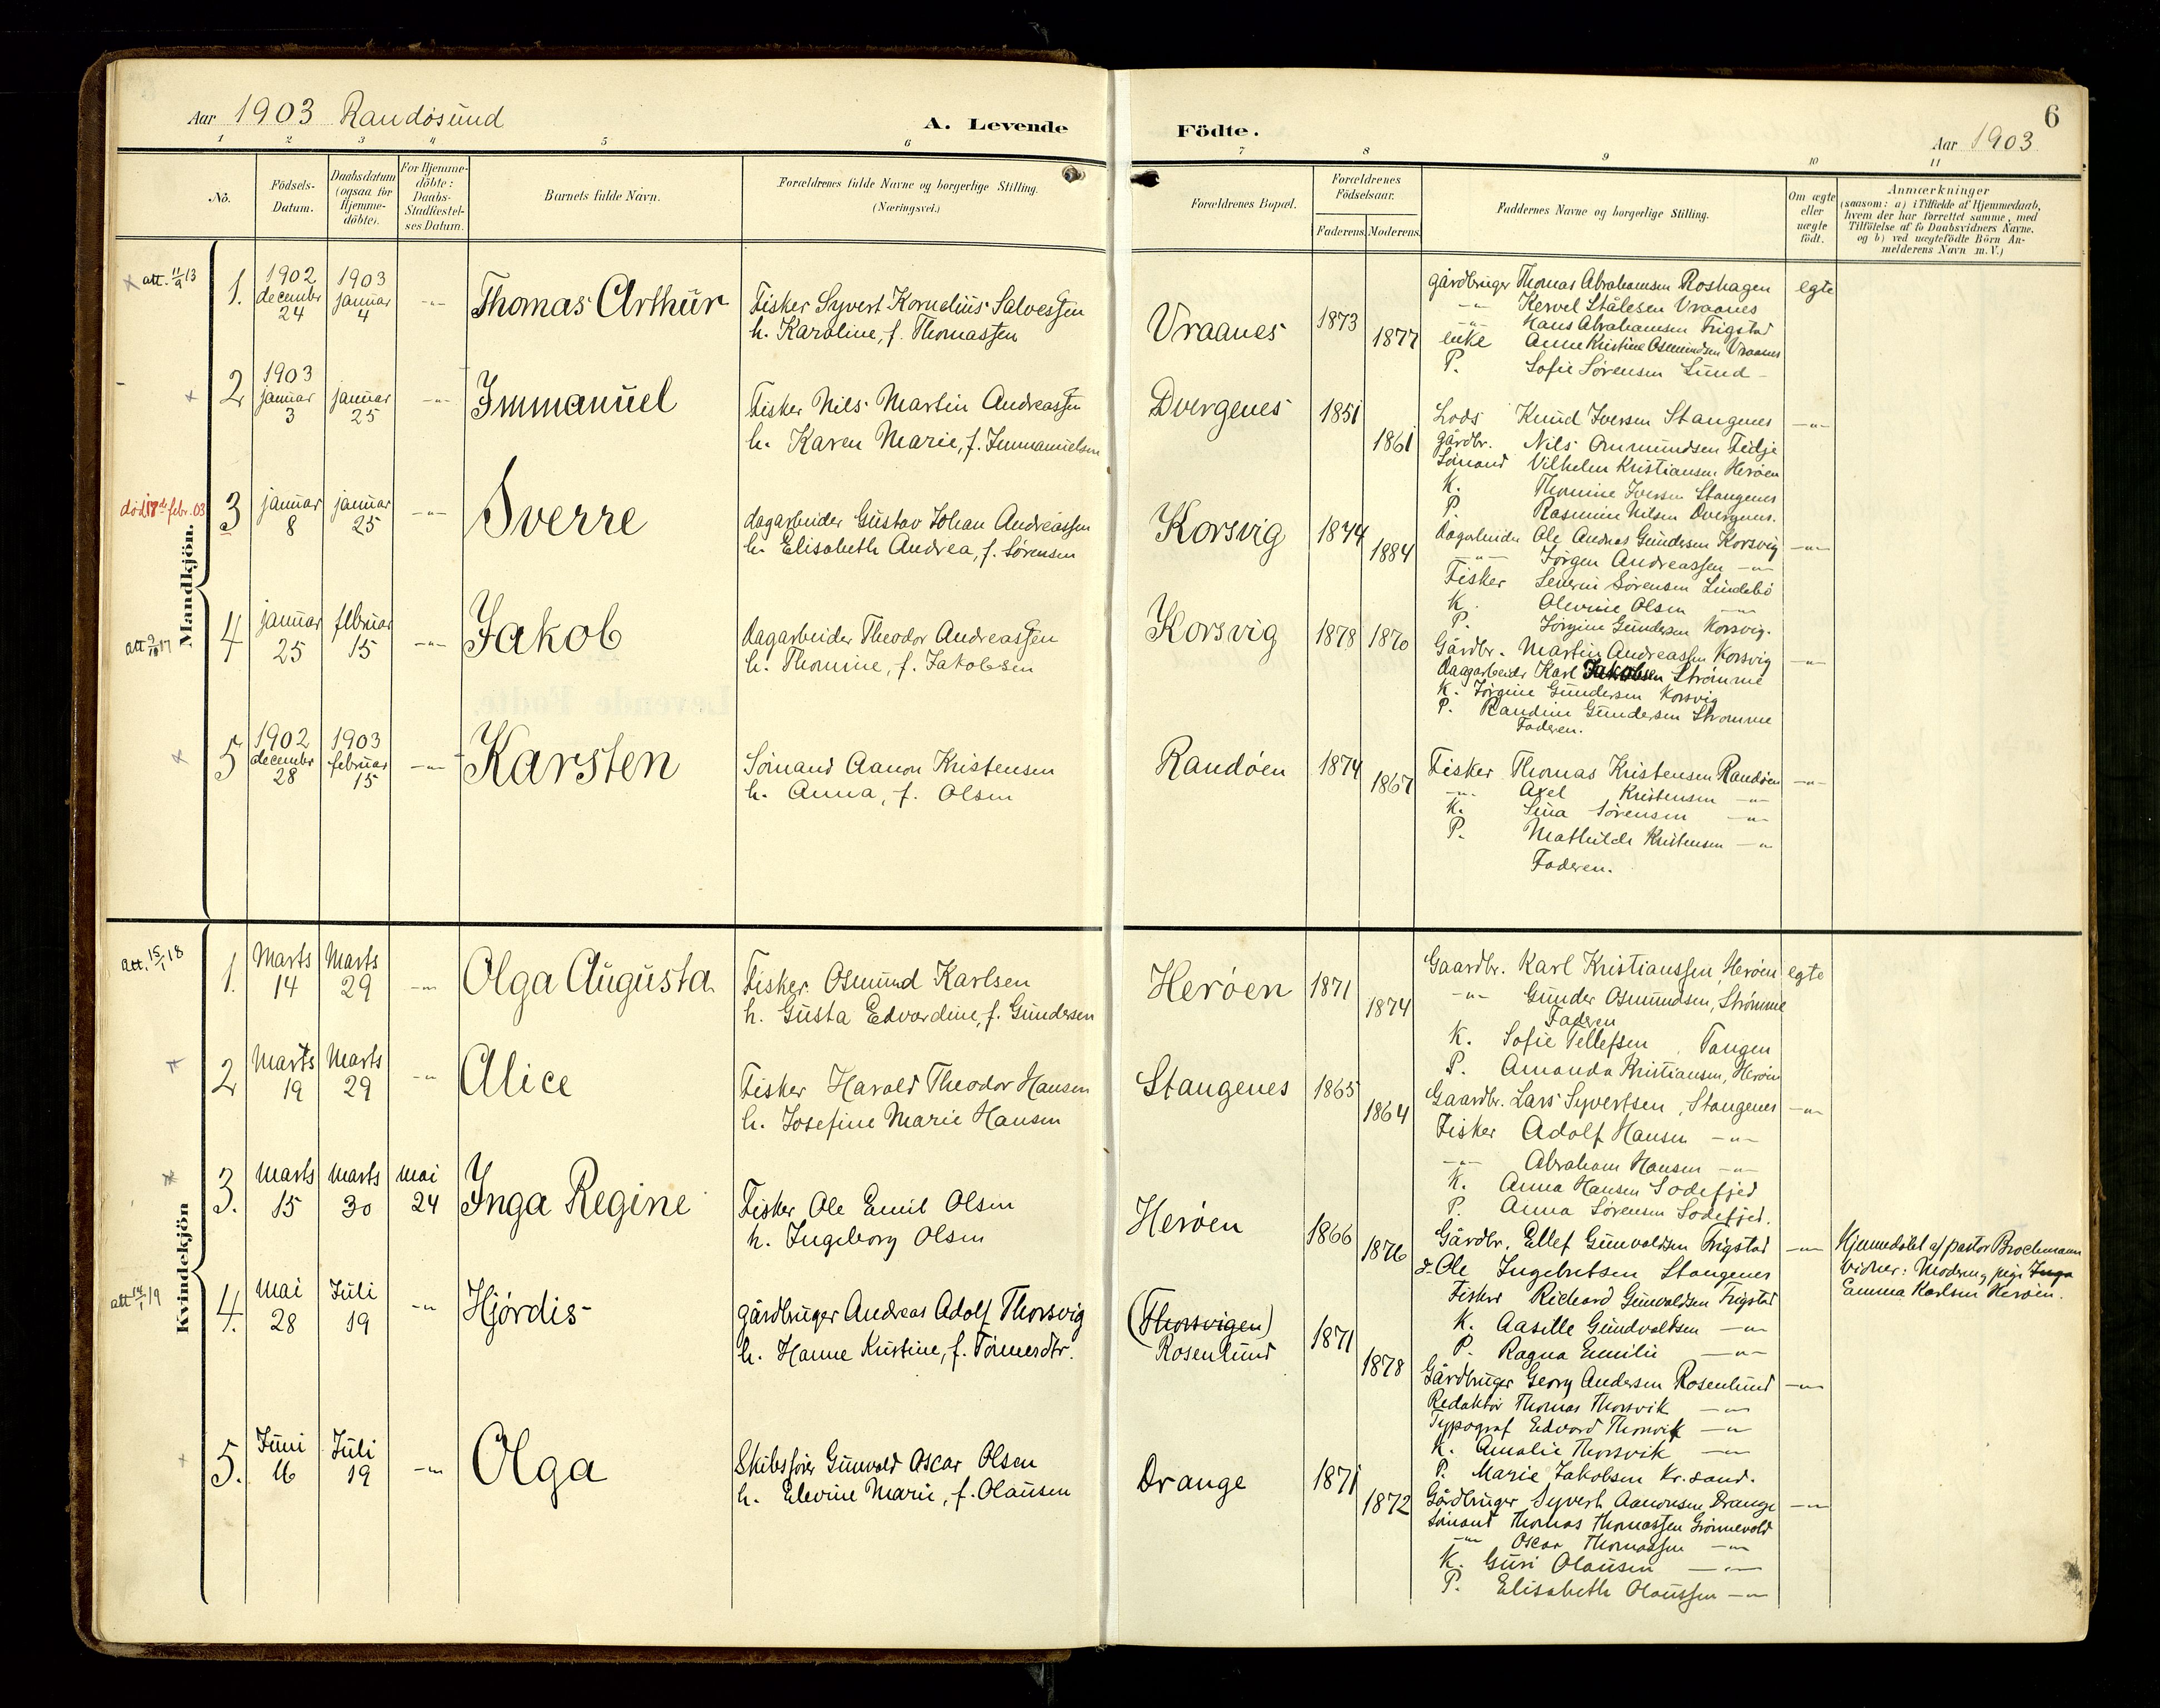 Aar 1903 Randösund
A. Levende
1 2 3 4 5 6
No.
Födsels-
Datum.
Daabsdatum
(ogsaa for
Hjemme-
döbte).
For Hjemme-
döbte:
Daabs-
Stadfæstel-
ses Datum.
Barnets fulde Navn.
Forældrenes fulde Navne og borgerlige Stilling.
(Næringsvei.)
Mandkjön.
att. 11/9 13
1.
1902
december
24
1903
januar
4
-"-
Thomas Arthur
Fisker Syvert Kornelius Salvessen
h. Karoline, f. Thomassen
2
1903
januar
3
januar
25
-"-
Immanuel
Fisker Nils Martin Andreassen
h. Karen Marie, f. Immanuelsen
död 18de febr. 03
3
januar
8
januar
25
-"-
Sverre
dagarbeider Gustav Johan Andreassen
h. Elisabeth Andrea, f. Sørensen
att 9/10 17
4
januar
25
februar
15
-"-
Jakob
dagarbeider Theodor Andreassen
h. Thomine, f. Jakobsen
5
1902
december
28
1903
februar
15
-"-
Karsten
Sömand Aanon Kristensen
h. Anna, f. Olsen
Kvindekjön
Att. 15/1 18
1.
Marts
14
Marts
29
-"-
Olga Augusta
Fisker Osmund Karlsen
h. Gusta Edvardine, f. Gundersen
2
Marts
19
Marts
29
-"-
Alice
Fisker Harald Theodor Hansen
h. Josefine Marie Hansen
3.
Marts
15
Marts
30
Mai
24
Inga Regine
Fisker Ole Emil Olsen
h. Ingeborg Olsen
att 14/1 19
4.
Mai
28
Juli
19
-"-
Hjördis
gårdbruger Andreas Adolf Thorsvig
h. Hanne Kristine, f. Tönnesdtr.
5.
Juni
16
Juli
19
-"-
Olga
Skibsfører Gunvald Oscar Olsen
h. Elevine Marie, f. Olausen
6
Födte.
Aar 1903
7 8 9 10 11
Forældrenes Bopæl.
Forældrenes
Födselsaar.
Faderens. Moderens.
Faddernes Navne og borgerlige Stilling.
Om ægte
eller
uægte
födt.
Anmærkninger
(saasom: a) i Tilfælde af Hjemmedaab,
hvem der har forrettet samme, med
Tilföielse af to Daabsvidners Navne.
og b) ved uægtefödte Börn An-
melderens Navn m. V.)
Vraanes
1873
1877
gårdbruger Thomas Abrahamsen Roshagen
-"- Kervel Stålesen Vraanes
-"- Hans Abrahamsen Frigstad
enke Anne Kristine Osmundsen Vraanes
P. Sofie Sørensen Lund
egte
Dvergenes
1851
1861
Lods Knud Iversen Stangenes
gårdbr. Nils Ommundsen Fidje
Sömand Vilhelm Kristiansen Heröen
K. Thomine Iversen Stangenes
P. Rasmine Nilsen Dvergenes.
-"-
Korsvig
1874
1884
dagarbeider Ole Andreas Gundersen Korsvig
-"- Jörgen Andreassen -"-
Fisker Severin Sørensen Lindebö
K. Olevine Olsen -"-
P. Jörgine Gundersen Korsvig.
-"-
Korsvig
1878
1870
Gårdbr. Martin Andreassen Korsvig
dagarbeider Karl Jakobsen Strömme
K. Jörgine Gundersen Korsvig
P. Randine Gundersen Strömme
Faderen.
-"-
Randöen
1874
1867
Fisker Thomas Kristensen Randöen
-"- Axel Kristensen -"-
K. Sina Sörensen -"-
P. Mathilde Kristensen -"-
Faderen.
-"-
Heröen
1871
1874
Gaardbr. Karl Kristianssen, Heröen
-"- Gunder Osmundsen, Strömme
Faderen
K. Sofie Tellefsen, Tangen
P. Amanda Kristiansen, Heröen
egte
Stangenes
1865
1864
Gaardbr. Lars Syvertsen, Stangenes
Fisker Adolf Hansen -"-
-"- Abraham Hansen -"-
K. Anna Hansen Sodefjed
P. Anna Sørensen Sodefjed.
-"-
Heröen
1866
1876
Gårdbr. Ellef Gunvaldsen Frigstad
d. Ole Ingebretsen Stangenes
Fisker Richard Gunvaldsen Frigstad
K. Aaselle Gundvaldsen -"-
P. Ragna Emilie -"-
-"-
Hjemmedöbt af pastor Brochmann
Vidner: Moderen, pige Inga
Emma Karlsen Heröen.
(Thorsvigen)
Rosenlund
1871
1878
Gårdbruger Georg Andersen Rosenlund
Redaktör Thomas Thorsvik -"-
Typograf Edvard Thorsvik -"-
K. Amalie Thorsvik -"-
P. Marie Jakobsen Kr.sand.
-"-
Drange
1871
1872
Gårdbruger Syvert Aanonsen Drange
Sömand Thomas Thomassen Grönnevold
-"- Oscar Thomassen -"-
K. Guri Olausen -"-
P. Elisabeth Olaussen -"-
-"-